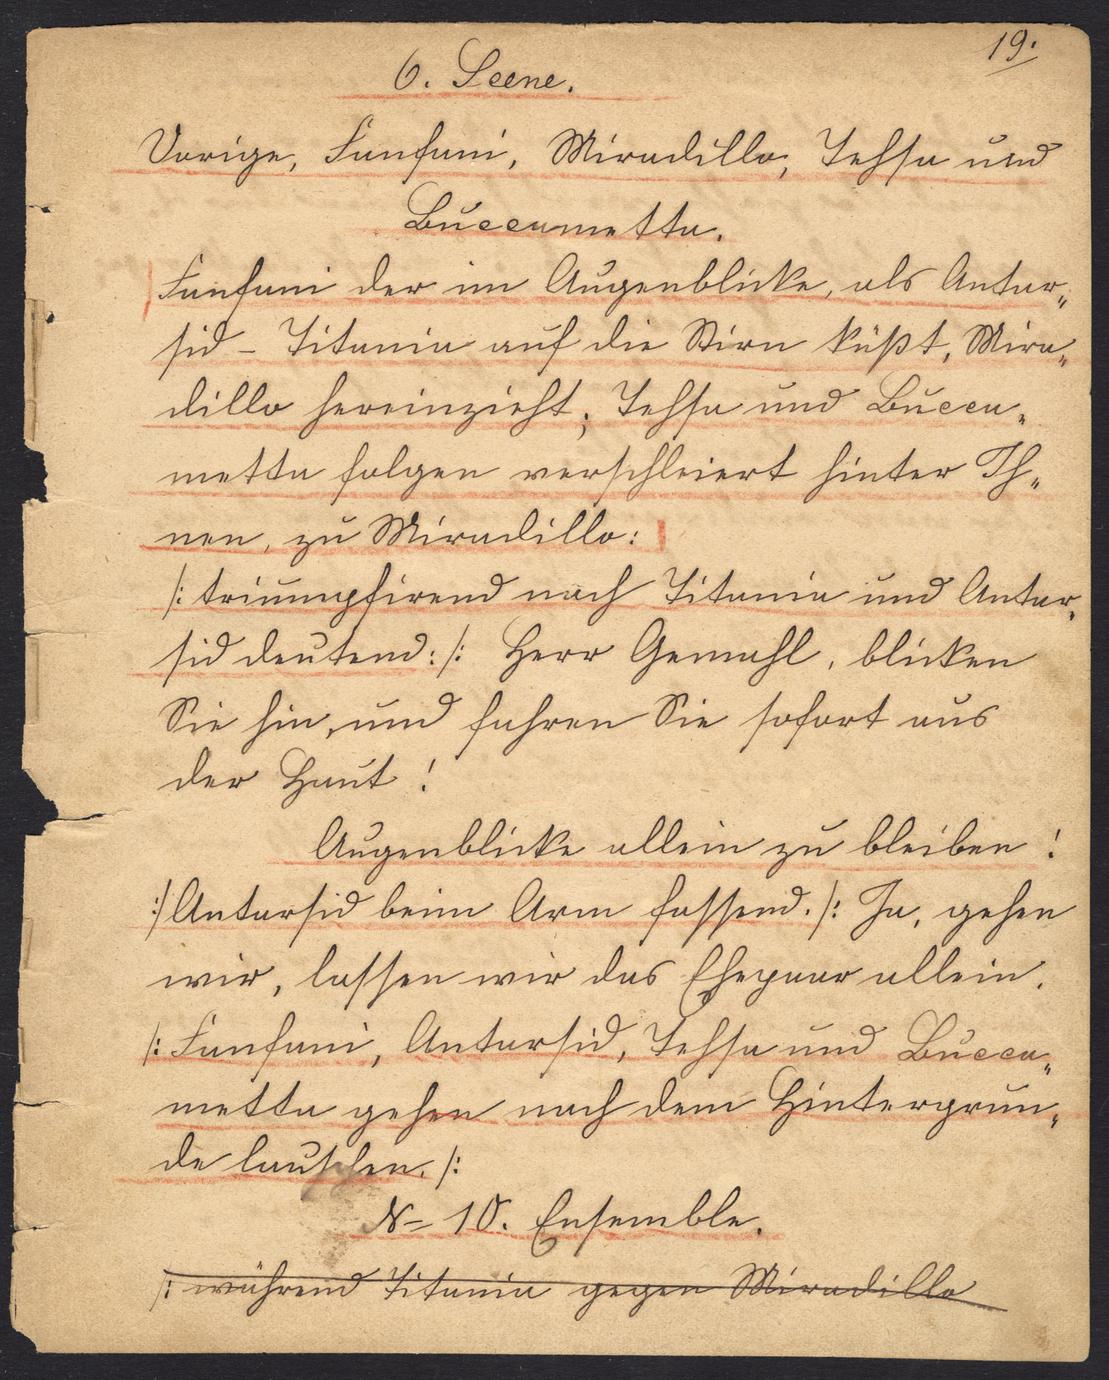 19.
6. Scene.
Vorige, Fanfani, Miradillo, Tessa und
Buccametta.
Fanfani der im Augenblicke, als Antar„
sid – Titania auf die Stirn küßt, Mira„
dillo hereinzieht; Tessa und Bucca„
metta folgen verschleiert hinter Ih„
nen, zu Miradillo:
/: triumphirend nach Titania und Antar„
sid deutend:/: Herr Gemahl, blicken
Sie hin, und fahren Sie sofort aus
der Haut!
Augenblicke allein zu bleiben!
:/ Antarsid beim Arm fassend./: Ja, gehen
wir, lassen wir das Ehepaar allein.
/: Fanfani, Antarsid, Tessa und Bucca„
metta gehen nach dem Hintergrun„
de lauschen./:
N– 10. Ensemble.
/: während Titania gegen Miradillo